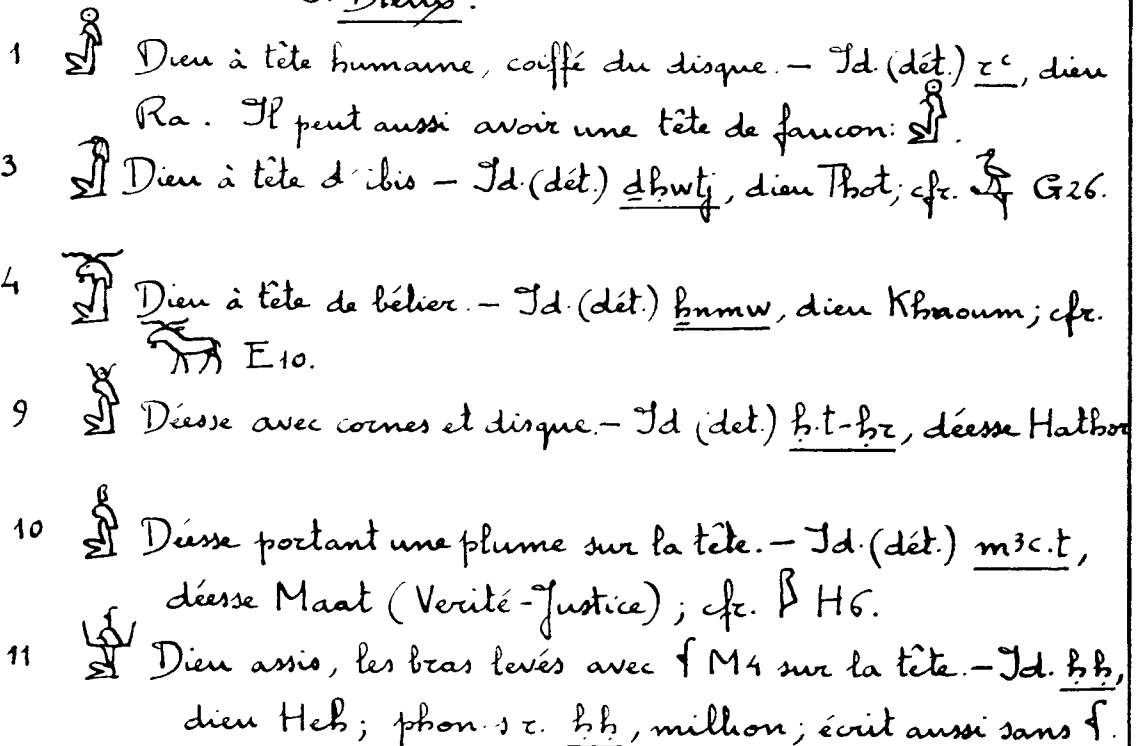 Dieux.
1 Dieu à tête humaine, coiffé du disque. – Id. (dét.) rꜥ, dieu
Ra. Il peut aussi avoir une tête de faucon: 𓁛.
3 Dieu à tête d'ibis – Id. (dét.) ḏḥwtj, dieu Thot; cfr. 𓅝 G26.
4 Dieu à tête de bélier. – Id. (dét.) ẖnmw, dieu Khnoum; cfr.
𓃝 E10.
9 Déesse avec cornes et disque. – Id (det.) ḥ.t-ḥr, déesse Hathor
10 Déesse portant une plume sur la tête. – Id. (dét.) mꜣꜥ.t,
déesse Maat (Verité-Justice); cfr. 𓆄 H6.
11 Dieu assis, les bras levés avec 𓆳 M4 sur la tête. – Id. ḥḥ,
dieu Heh; phon. s r. ḥḥ, million; écrit aussi sans 𓆳.